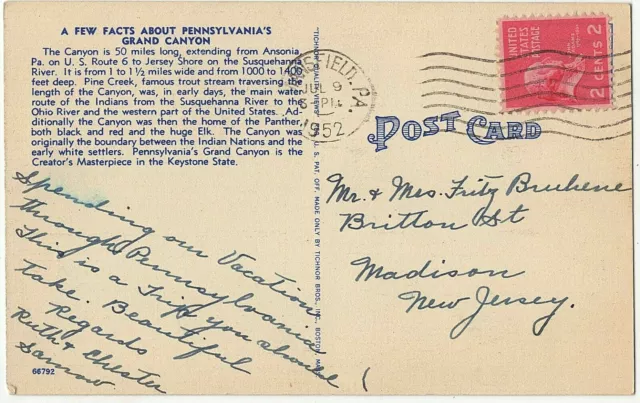 A FEW FACTS ABOUT PENNSYLVANIA'S
GRAND CANYON
The Canyon is 50 miles long, extending from Ansonia,
Pa. on U. S. Route 6 to Jersey Shore on the Susquehanna
River. It is from 1 to 1½ miles wide and from 1000 to 1400
feet deep. Pine Creek, famous trout stream traversing the
length of the Canyon, was, in early days, the main water
route of the Indians from the Susquehanna River to the
Ohio River and the western part of the United States. Ad-
ditionally the Canyon was then the home of the Panther,
both black and red and the huge Elk. The Canyon was
originally the boundary between the Indian Nations and the
early white settlers. Pennsylvania's Grand Canyon is the
Creator's Masterpiece in the Keystone State.
Spending our Vacation
through Pennsylvania
This is a Trip you should
take. Beautiful
Regards
Ruth & Chester
Sarnow
66792
"TICHNOR QUALITY VIEWS" REG. U. S. PAT. OFF. MADE ONLY BY TICHNOR BROS., INC., BOSTON, MASS.
SFIELD, PA.
JUL 9
PM
1952
UNITED
STATES
POSTAGE
2 CENTS 2
POST CARD
Mr. & Mrs. Fritz Bruhene
Britton St
Madison
New Jersey.